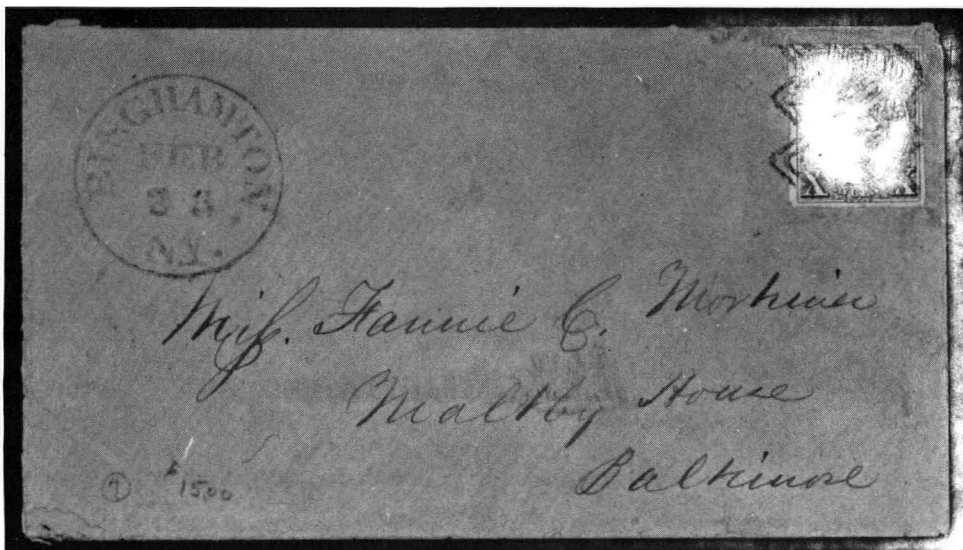 BINGHAMTON
FEB
23
N.Y.
Miss. Fannie C. Mortimer
Maltby House
Baltimore
1500